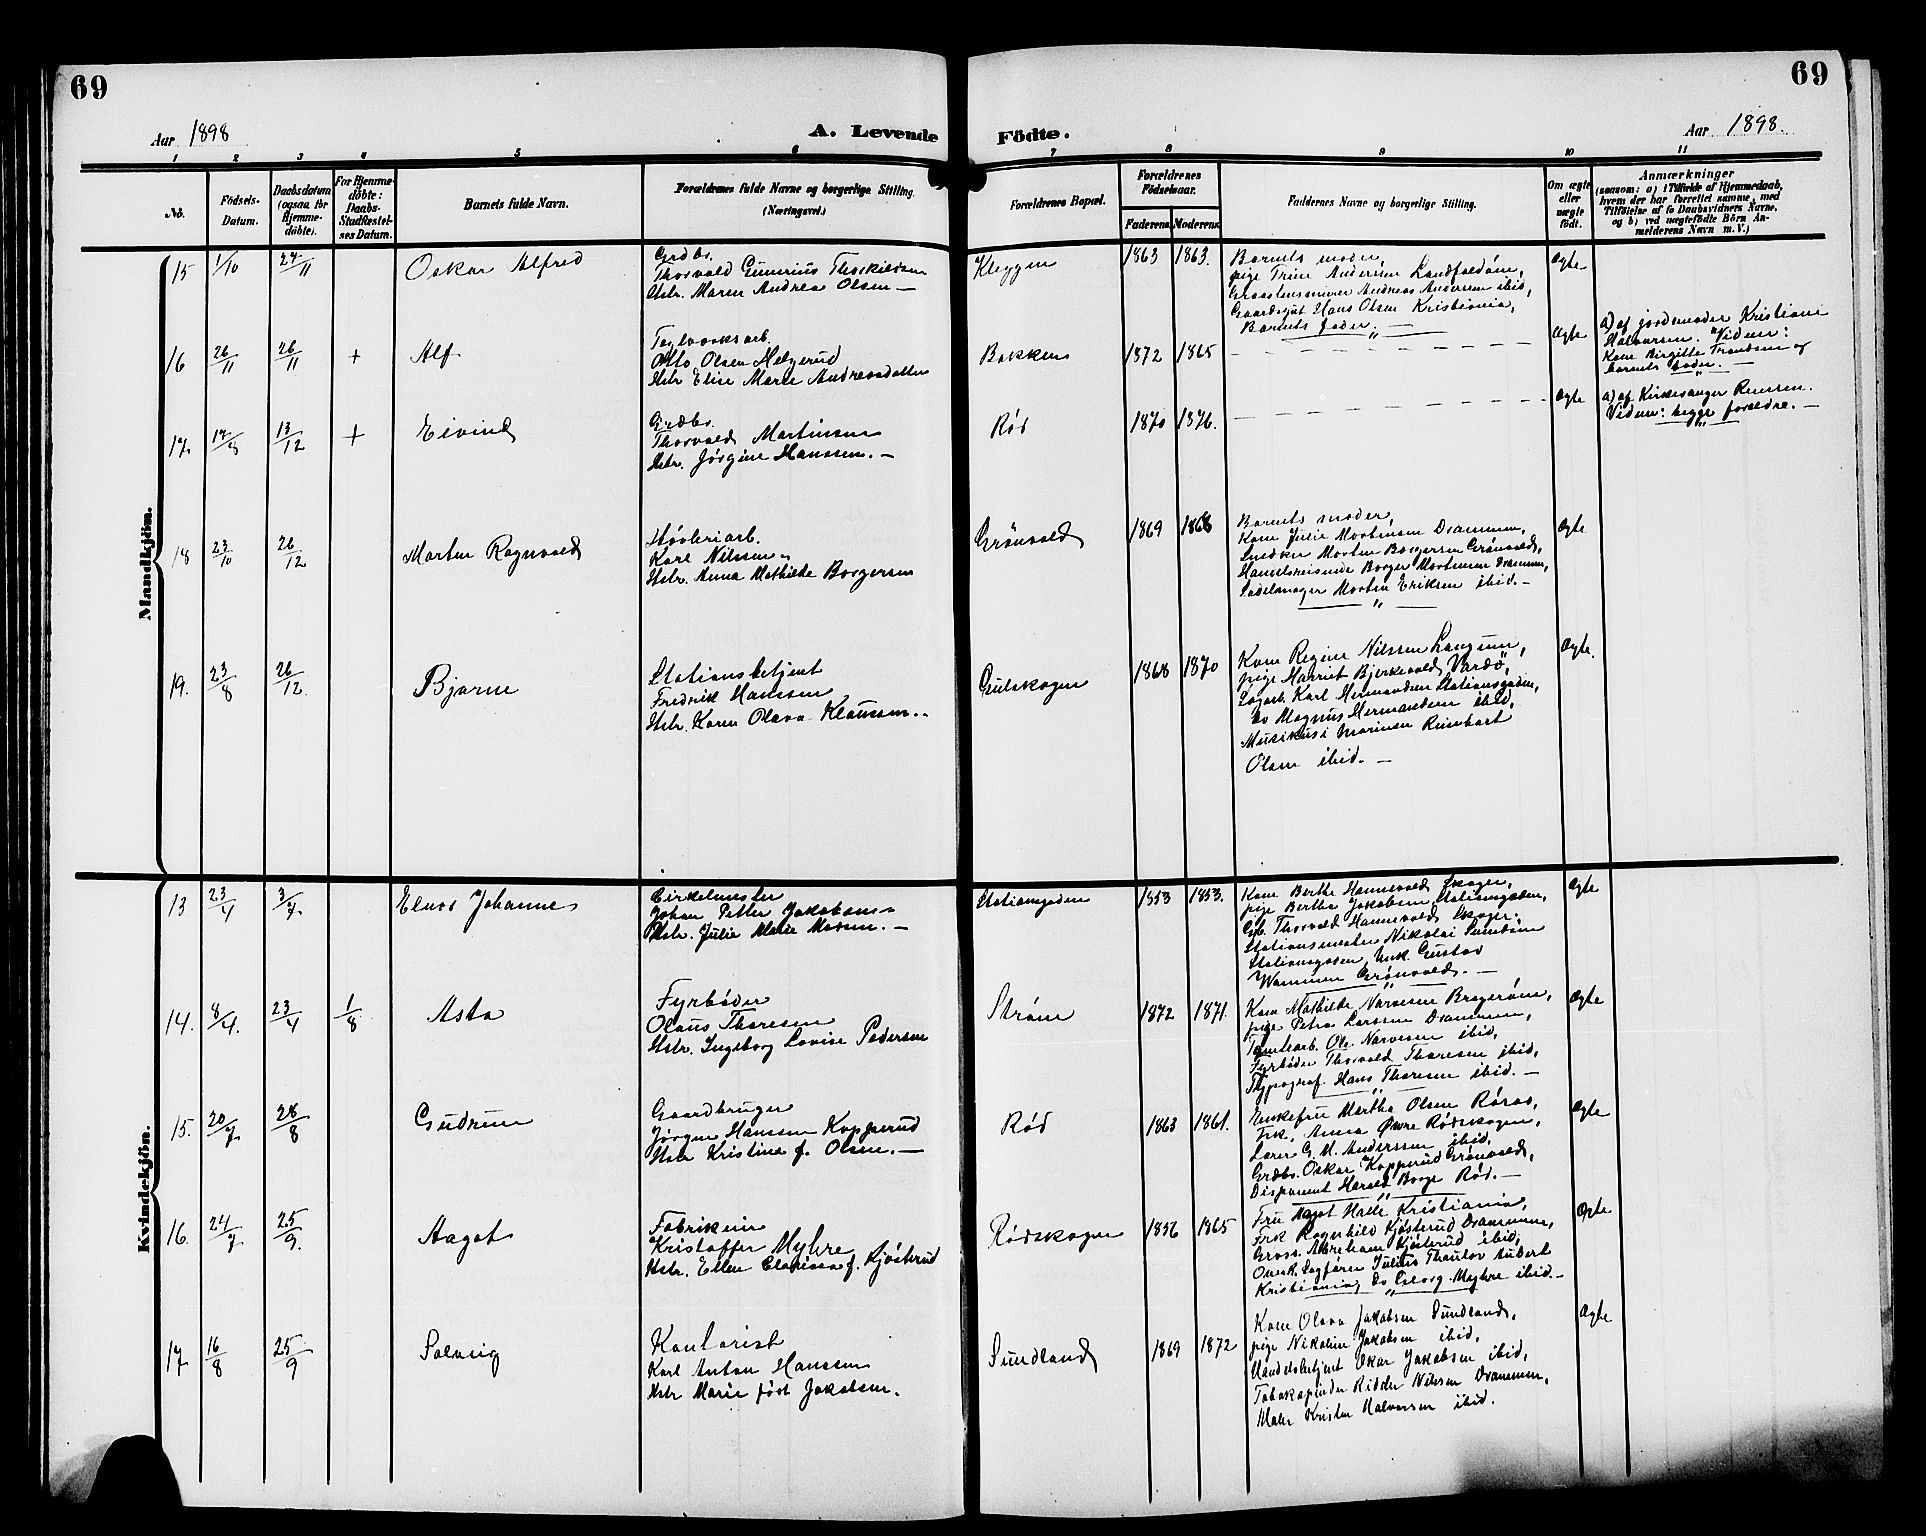 69
69
Aar 1898
A. Levende
Födte.
Aar 1898.
1 2 3 4 5 6 7 8 9 10 11
No.
Födsels-
Datum.
Daabsdatum
(ogsaa for
Hjemme-
döbte).
For Hjemme-
döbte:
Daabs-
Stadfæstel-
ses Datum.
Barnets fulde Navn.
Forældrenes fulde Navne og borgerlige Stilling.
(Næringsvei.)
Forældrenes Bopæl.
Forældrenes
Födselsaar.
Faderens Moderens
Faddernes Navne og borgerlige Stilling.
Om ægte
eller
uægte
födt.
Anmærkninger
(saasom: a) i Tilfælde af Hjemmedaab,
hvem der har forrettet samme, med
Tilföielse af to Daabsvidners Navne,
og b) ved uægtefödte Börn An-
melderens Navn m. V.)
Mandkjön.
15 1/10 27/11
Oskar Alfred
Grdbr.
Thorvald Gunerius Thorkildsen
Hstr. Maren Andrea Olsen —
Kleggen
1863 1863.
Barnets moder,
pige Trine Andersen Landfaldøen,
Graastensmurer Andreas Andersen ibid,
Gaardsgut Hans Olsen Kristiania,
Barnets fader. —
Ægte
16 26/11 26/11 +
Alf
Teglværksarb.
Otto Olsen Helgerud
Hstr Elise Marie Andreasdatter
Bakken
1872 1865
Ægte
a) af jordemoder Kristiane
Halvorsen. Vidner:
Kone Birgitte Trondsen og
barnets fader. —
17 17/8 13/12 +
Eivind
Grdbr.
Thorvald Martinsen
Hstr. Jørgine Hanssen. —
Rød
1870 1876.
Ægte
a) af Kirkesanger Reiersen.
Vidner: begge forældre. —
18 23/10 26/12
Morten Ragnvald
Høvleriarb.
Karl Nilssen
Hstr. Anna Mathilde Borgersen
Grønvold
1869 1868
Barnets moder,
Kone Julie Mortensen Drammen,
Snedker Morten Borgersen Grønvold,
Handelsreisende Borger Mortensen Drammen,
Sadelmager Morten Eriksen ibid. —
Ægte
19. 23/8 26/12.
Bjarne
Stationsbetjent
Fredrik Hanssen
Hstr. Karen Olava Klaussen..
Gulskogen
1868 1870
Kone Regine Nilssen Langum,
pige Harriet Bjerkevold Vardø,
Lagarb. Karl Hermandsen Stationsgaden,
Do Magnus Hermandsen ibid,
Musikus i Marinen Reinhart
Olsen ibid. —
Ægte.
Kvindekjön.
13 23/4 3/7
Elnor Johanne
Cirkelmester
Johan Petter Jakobsen
Hstr. Julie Marie Madsen. —
Stationsgaden
1853 1853.
Kone Berthe Hannevold Skoger,
pige Bertha Jakobsen Stationsgaden,
Grb. Thorvald Hannevold Skoger,
Stationsmester Nikolai
Stationsgaden, Unk. Gustav
Wammen Grønvold. —
Ægte
14. 8/4. 23/4 1/8
Asta
Fyrbøder
Olaus Thoresen
Hstr. Ingeborg Lovise Pedersen
Strøm
1872 1871.
Kone Mathilde Narvesen Bragerøen,
pige Petra Larssen Drammen,
Tomtearb. Ole Narvesen ibid,
Fyrbøder Thorvald Thoresen ibid,
Typograf. Hans Thoresen ibid. —
Ægte
15. 20/7 28/8
Gudrun
Gaardbruger
Jørgen Hanssen Kopperud
Hstr Kristine f. Olsen. —
Rød
1863 1861.
Enkefru Martha Olsen Røraas,
Frk. Anna Øvre Rødskogen,
Lærer G. M. Anderssen ibid.
Grdbr. Oskar Kopperud Grønvold,
Disponent Harald Borge Rød. —
Ægte
16. 24/7 25/9.
Aagot
Fabrikeier
Kristoffer Myhre
Hstr. Ellen Clarissa f. Kjøsterud
Rødskogen
1856 1865
Fru Aagot Halle Kristiania,
Frk Ragnhild Kjøsterud Drammen,
Gross. Abraham Kjøsterud ibid,
Overr. Sagfører Julius Thaulov Aubert
Kristiania, Do Georg Myhre ibid. —
Ægte
17 16/8 25/9
Solveig
Kontorist
Karl Anton Hanssen
Hstr Marie født Jakobsen.
Sundland
1869 1872
Kone Olava Jakobsen Sundland,
pige Nikoline Jakobsen ibid,
Handelsbetjent Oskar Jakobsen ibid,
Tobakspinder Ridder Nilssen Drammen,
Maler Kristen Halvorsen ibid.
Ægte